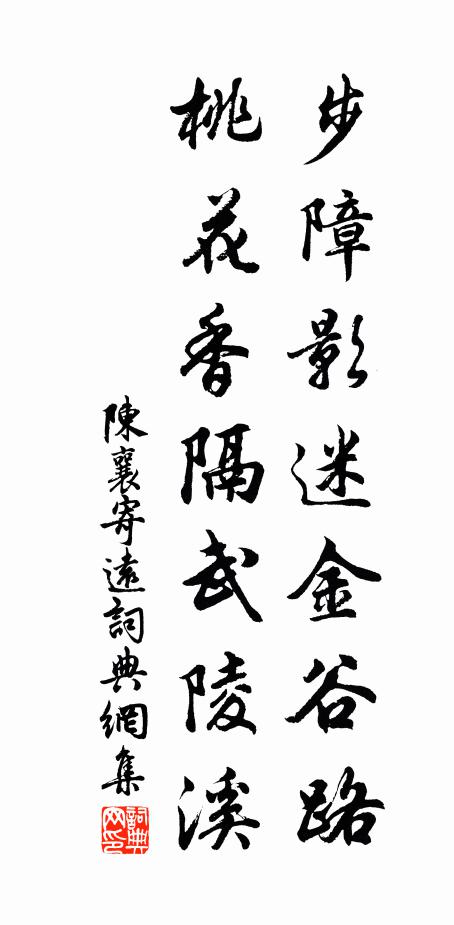 步障影迷金谷路
桃花香隔武陵溪
陳襄寄遠詞典網集
詞典网印